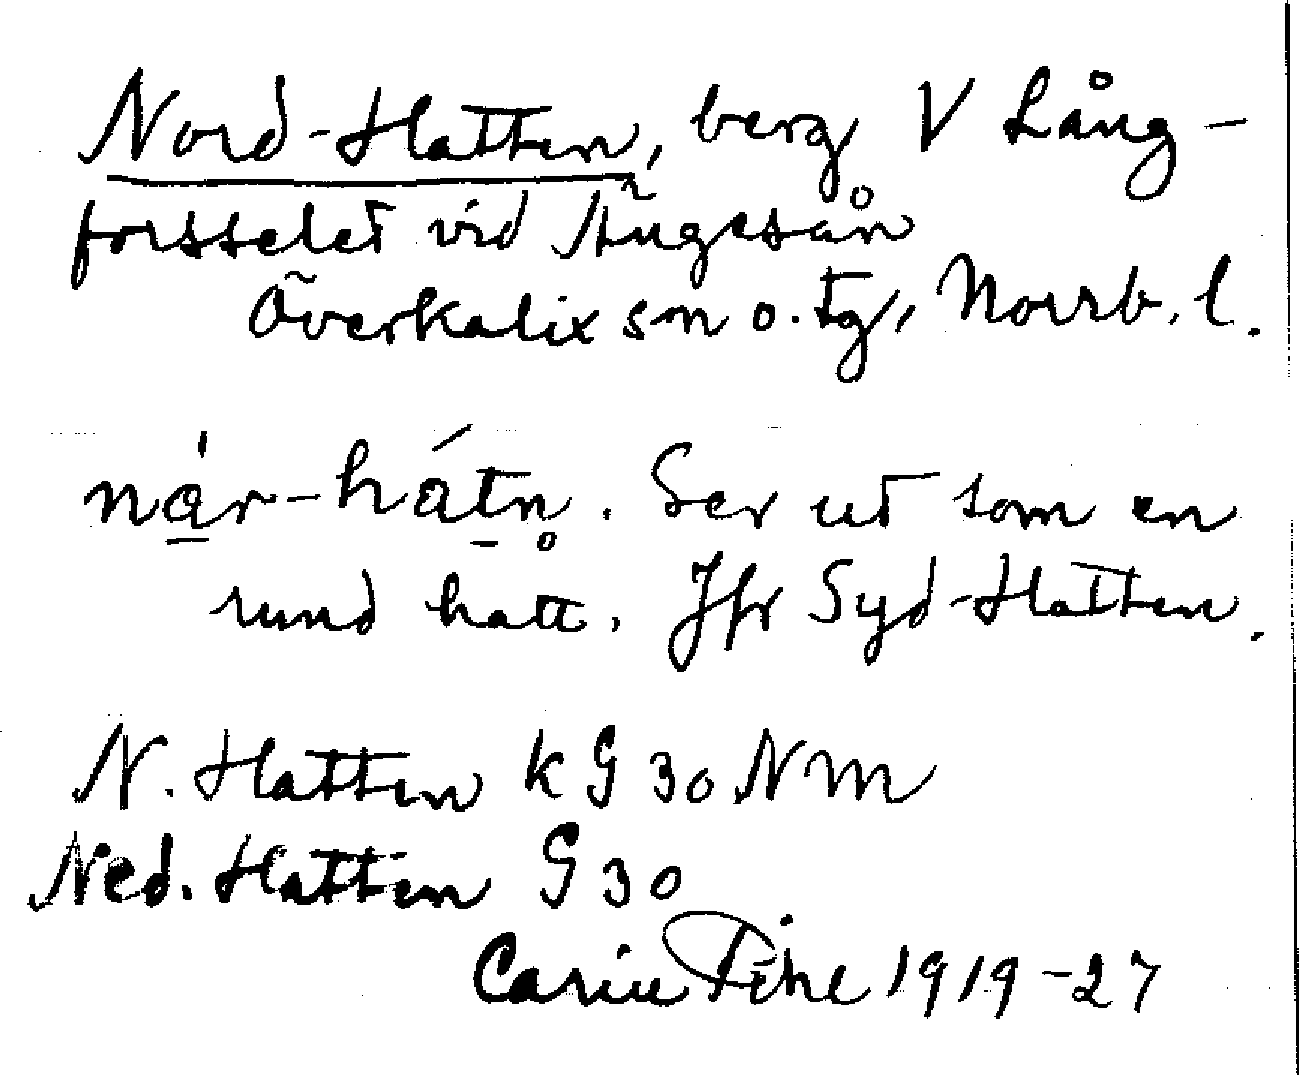 Nord-Hatten, berg V Lång-
forsselet vid Ängesån
Överkalix sn o. tg, Norrb. l.
når-hátn̥. Ser ut som en
rund hatt. Jfr Syd-Hatten.
N. Hatten k G 30 NM
Ned. Hatten G 30
Carin Pihl 1919-27